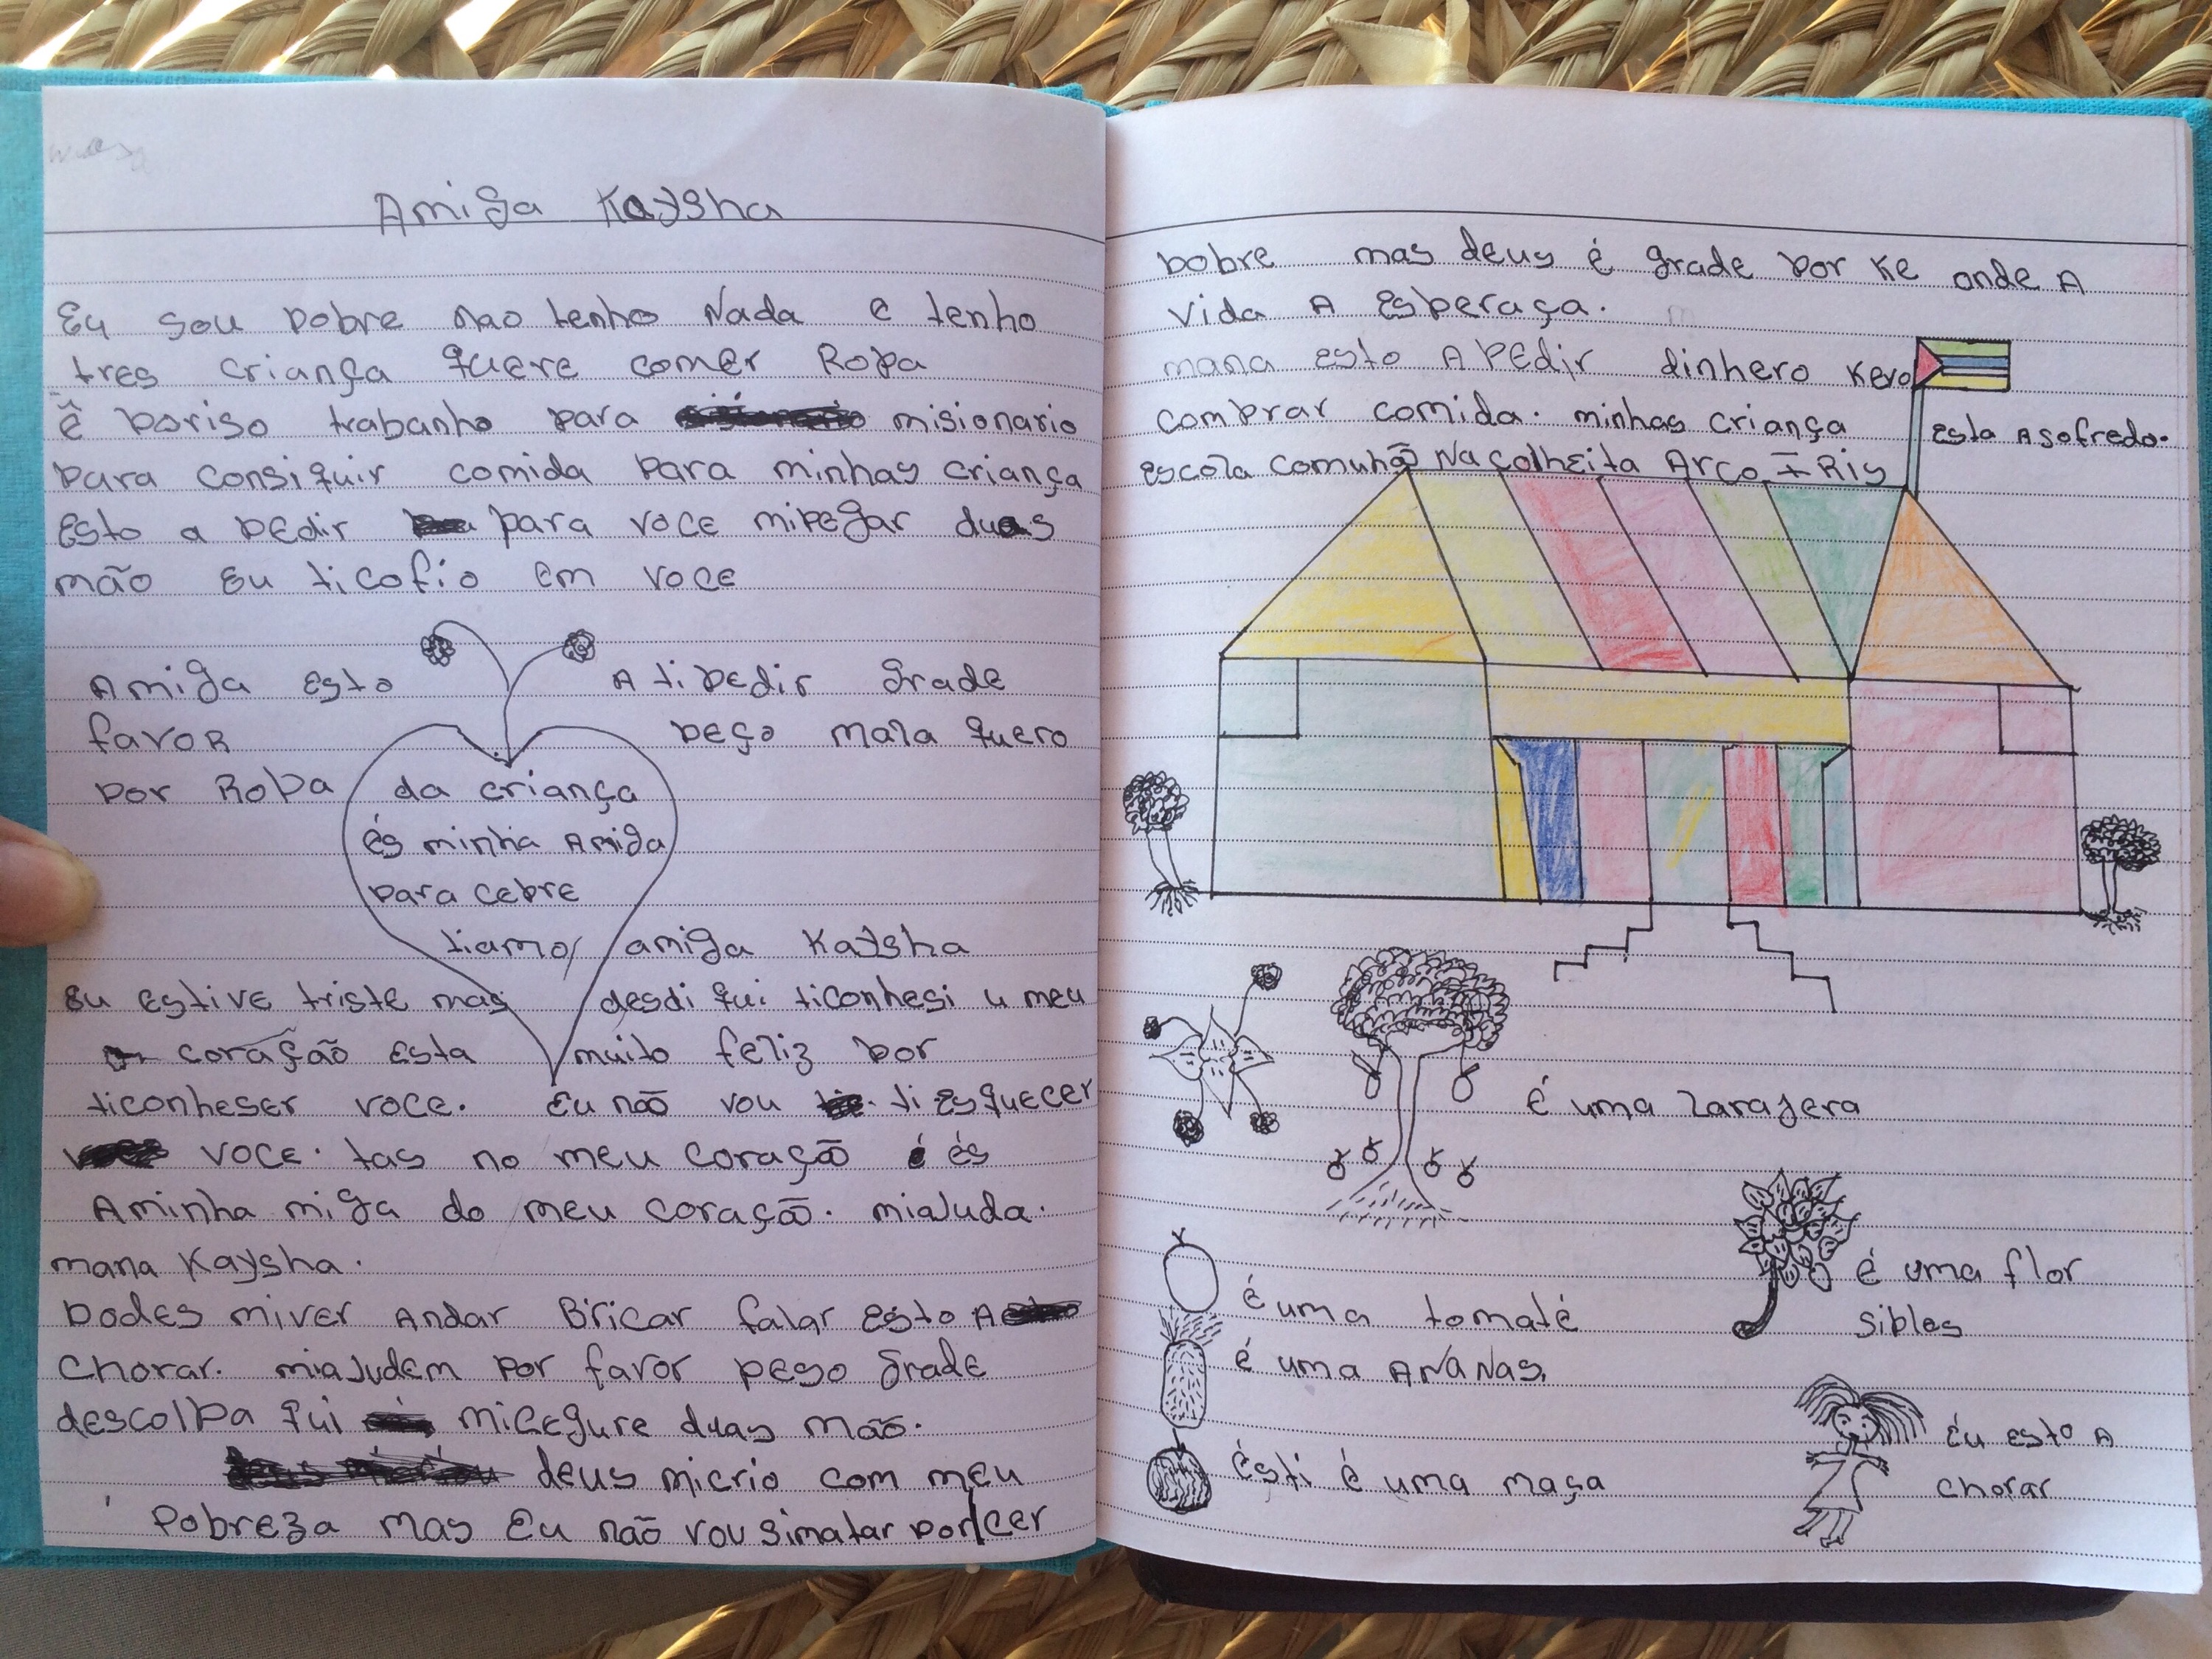 Amiga Kaysha
Eu sou pobre nao tenho Nada e tenho
tres criança quere comer Ropa
ê poriso trabanho para misionario
para consiquir comida para minhas criança
Esto a pedir para voce mipegar duas
mão Eu ticofio em voce
Amiga esto A tipedir grade
favor peço mala quero
por Ropa da criança
és minha Amiga
para cebre
tiamo amiga Kaysha
Eu estive triste mas desdi qui ticonhesi u meu
coração esta muito feliz por
ticonheser voce. Eu não vou ti esquecer
voce. tas no meu coração é és
Aminha miga do meu coração. miajuda.
mana Kaysha.
podes miver Andar Bricar falar Esto A
chorar. miajudem por favor peso grade
descolpa qui micegure duas mão.
deus micrio com meu
pobreza mas Eu não vou simatar por cer
pobre mas deus é grade por ke onde A
vida A Esperaça.
mana Esto A pedir dinhero kero
comprar comida. minhas criança Esta Asofredo.
Escola comunhã Na colheita Arco I Ris
é uma larajera
é uma flor
sibles
é uma tomaté
é uma ANANAS.
ésti é uma maça
éu esto A
chorar